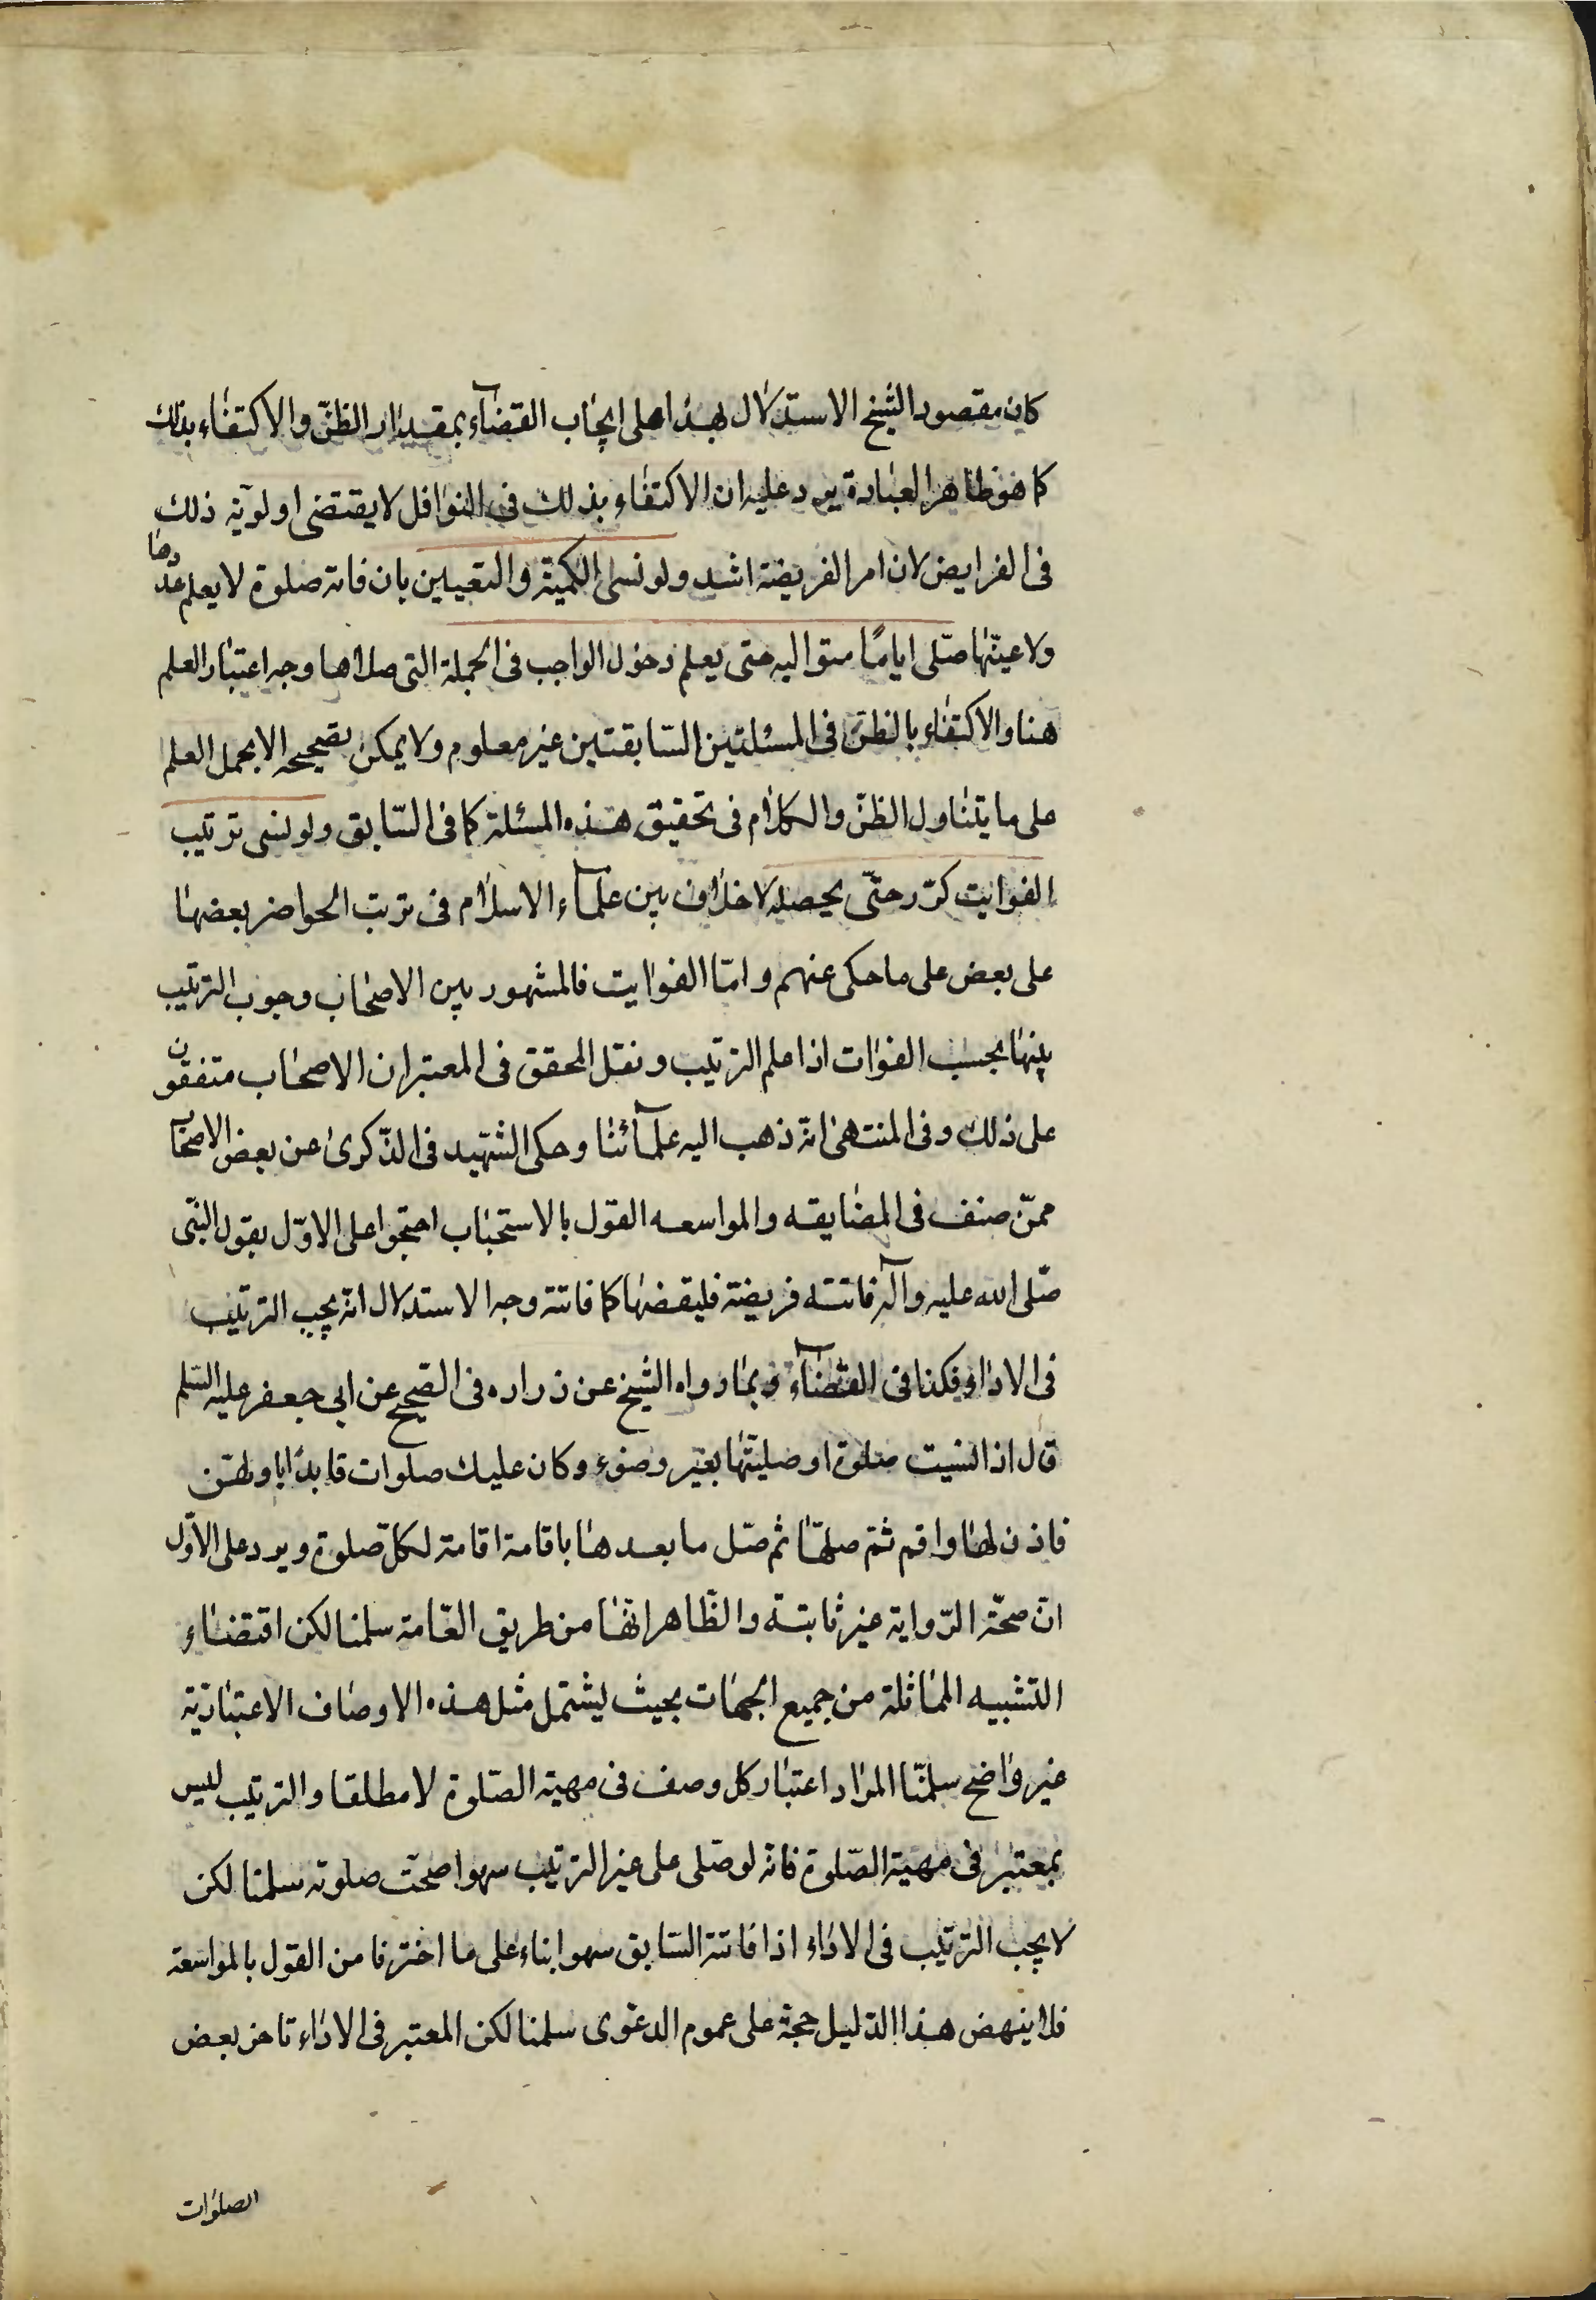 كان مقصود الشيخ الاستدلال بهذا على ايجاب القضآء بمقدار الظنّ والاكتفاء بذلك
كما هو ظاهر العبارة يرد عليه ان الاكتفاء بذلك فى النوافل لا يقتضى اولويّة ذلك
فى الفرايض لان امر الفريضة اشد ولو نسى الكميّة والتعيين بان فاته صلوة لا يعلم عددها
ولا عينها صلّى ايامًا متواليه حتى يعلم دخول الواجب فى الجملة التى صلاها وجه اعتبار العلم
هنا والاكتفاء بالظنّ فى المسئلتين السّابقتين غير معلوم ولا يمكن تصحيحه الا بحمل العلم
على ما يتناول الظنّ والكلام فى تحقيق هذه المسئلة كما فى السّابق ولو نسى ترتيب
الفوايت كرّر حتّى يحصله لا خلاف بين علمآء الاسلام فى ترتب الحواضر بعضها
على بعض على ما حكى عنهم وامّا الفوايت فالمشهور بين الاصحاب وجوب الترتيب
بينها بحسب الفوات اذا علم الترتيب ونقل المحقق فى المعتبر ان الاصحاب متفقون
على ذلك وفى المنتهى انه ذهب اليه علمآئنا وحكى الشهيد فى الذّكرى عن بعض الاصحاب
ممّن صنف فى المضايقه والمواسعه القول بالاستحباب احتجوا على الاوّل بقول النبّى
صّلى الله عليه وآله فاتته فريضة فليقضها كما فاتته وجه الاستدلال انّه يجب الترتيب
فى الاداء فكذا فى القضآء وبما رواه الشيخ عن زراره فى الصّحيح عن ابى جعفر عليه السّلم
قال اذا نسيت صلوة او صليتها بغير وضوء وكان عليك صلوات فابدا باولهّن
فاذن لها واقم ثمّ صلّها ثم صّل ما بعدها باقامة اقامة لكلّ صلوة ويرد على الاوّل
انّ صحّة الرّواية غير ثابتة والظّاهر انّها من طريق العّامة سلمنا لكن اقتضاء
التشبيه المماثلة من جميع الجهات بحيث يشتمل مثل هذه الاوصاف الاعتباريّة
غير واضح سلمّنا المراد اعتبار كل وصف فى مهية الصّلوة لا مطلقا والترتيب ليس
بمعتبر فى مهية الصّلوة فانّه لو صّلى على غير الترتيب سهوا صحّت صلوته سلمنا لكن
لا يجب الترتيب فى الاداء اذا فاتته السّابق سهوا بناء على ما اخترنا من القول بالمواسعة
فلا ينهض هذا الدّليل حجّة على عموم الدعوى سلمنا لكن المعتبر فى الاداء تاخر بعض
الصلوات